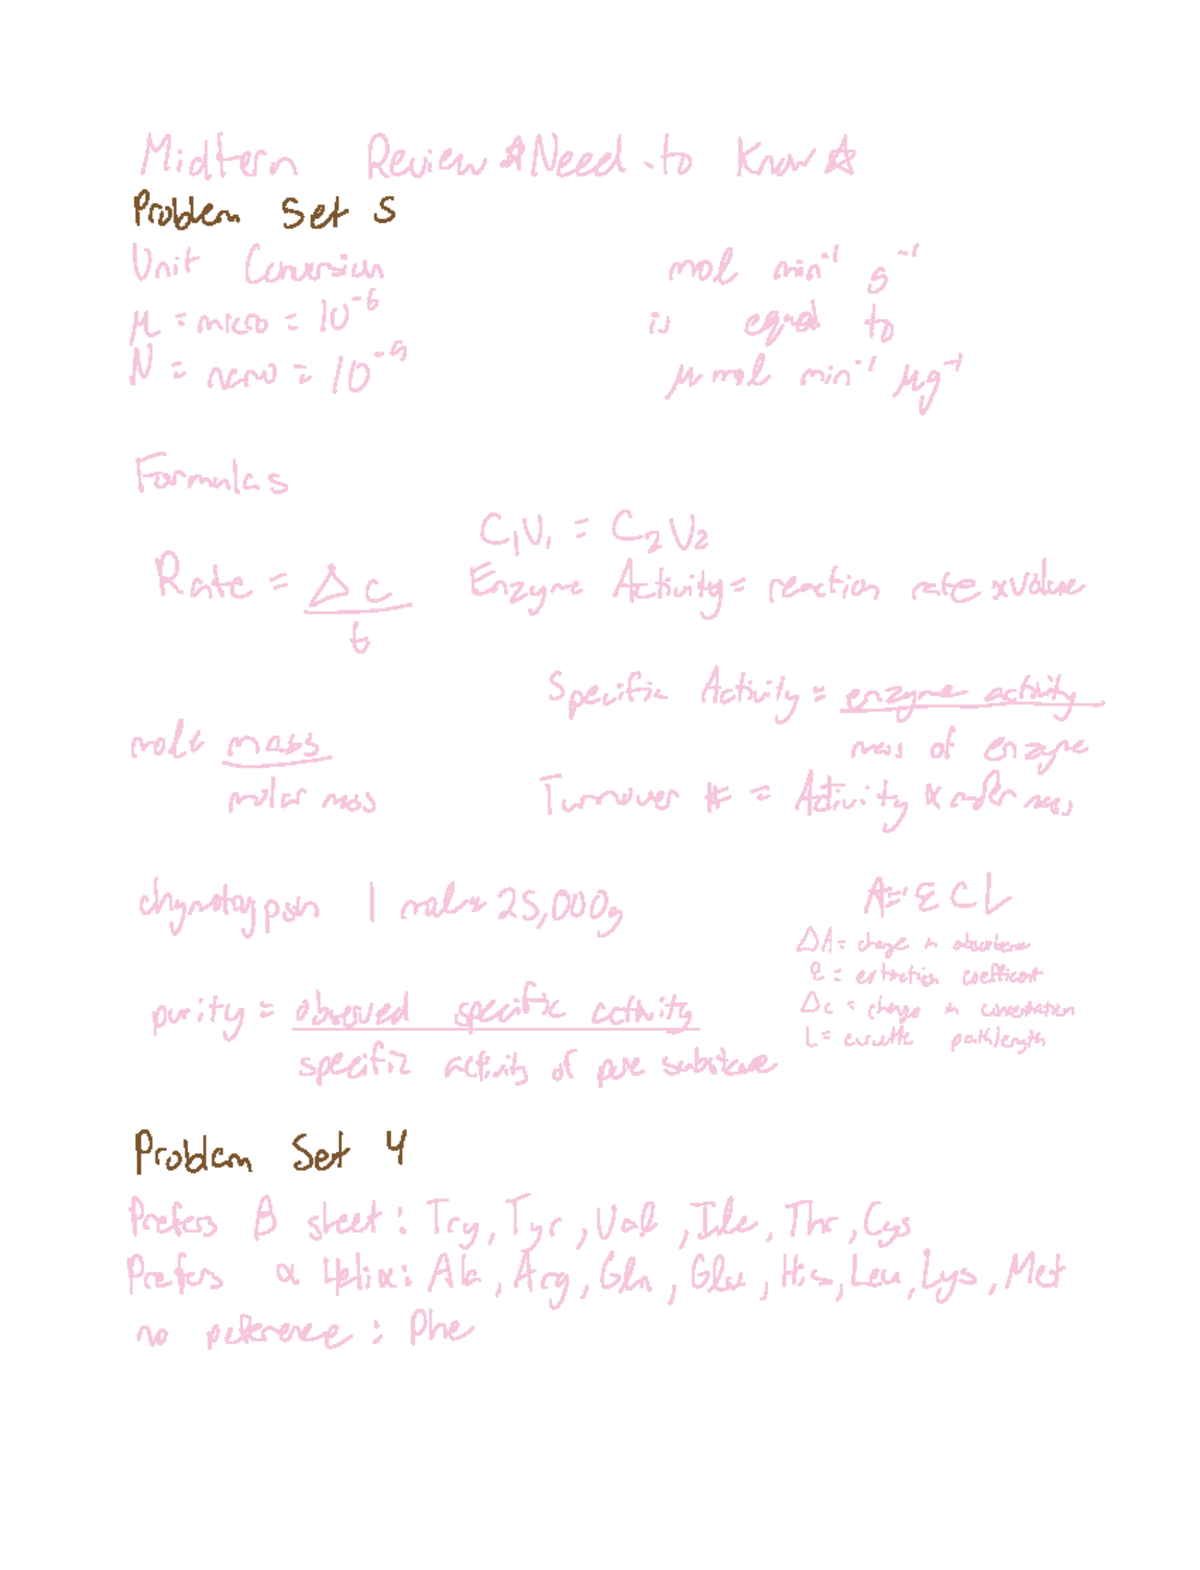 Midterm Review ☆Need to Know☆
Problem Set 5
Unit Conversion
μ = micro = 10⁻⁶
N = nano = 10⁻⁹
mol min⁻¹ g⁻¹
is equal to
μmol min⁻¹ μg⁻¹
Formulas
C₁V₁ = C₂V₂
Rate = Δc / t
Enzyme Activity = reaction rate x volume
Specific Activity = enzyme activity / mass of enzyme
mole mass / molar mass
Turnover # = Activity x molar mass
chymotrypsin 1 mol = 25,000g
A = ε C L
ΔA = change in absorbance
ε = extinction coefficient
Δc = change in concentration
L = cuvette pathlength
purity = observed specific activity / specific activity of pure substance
Problem Set 4
Prefers B sheet: Try, Tyr, Val, Ile, Thr, Cys
Prefers α Helix: Ala, Arg, Gln, Glu, His, Leu, Lys, Met
no preference: Phe